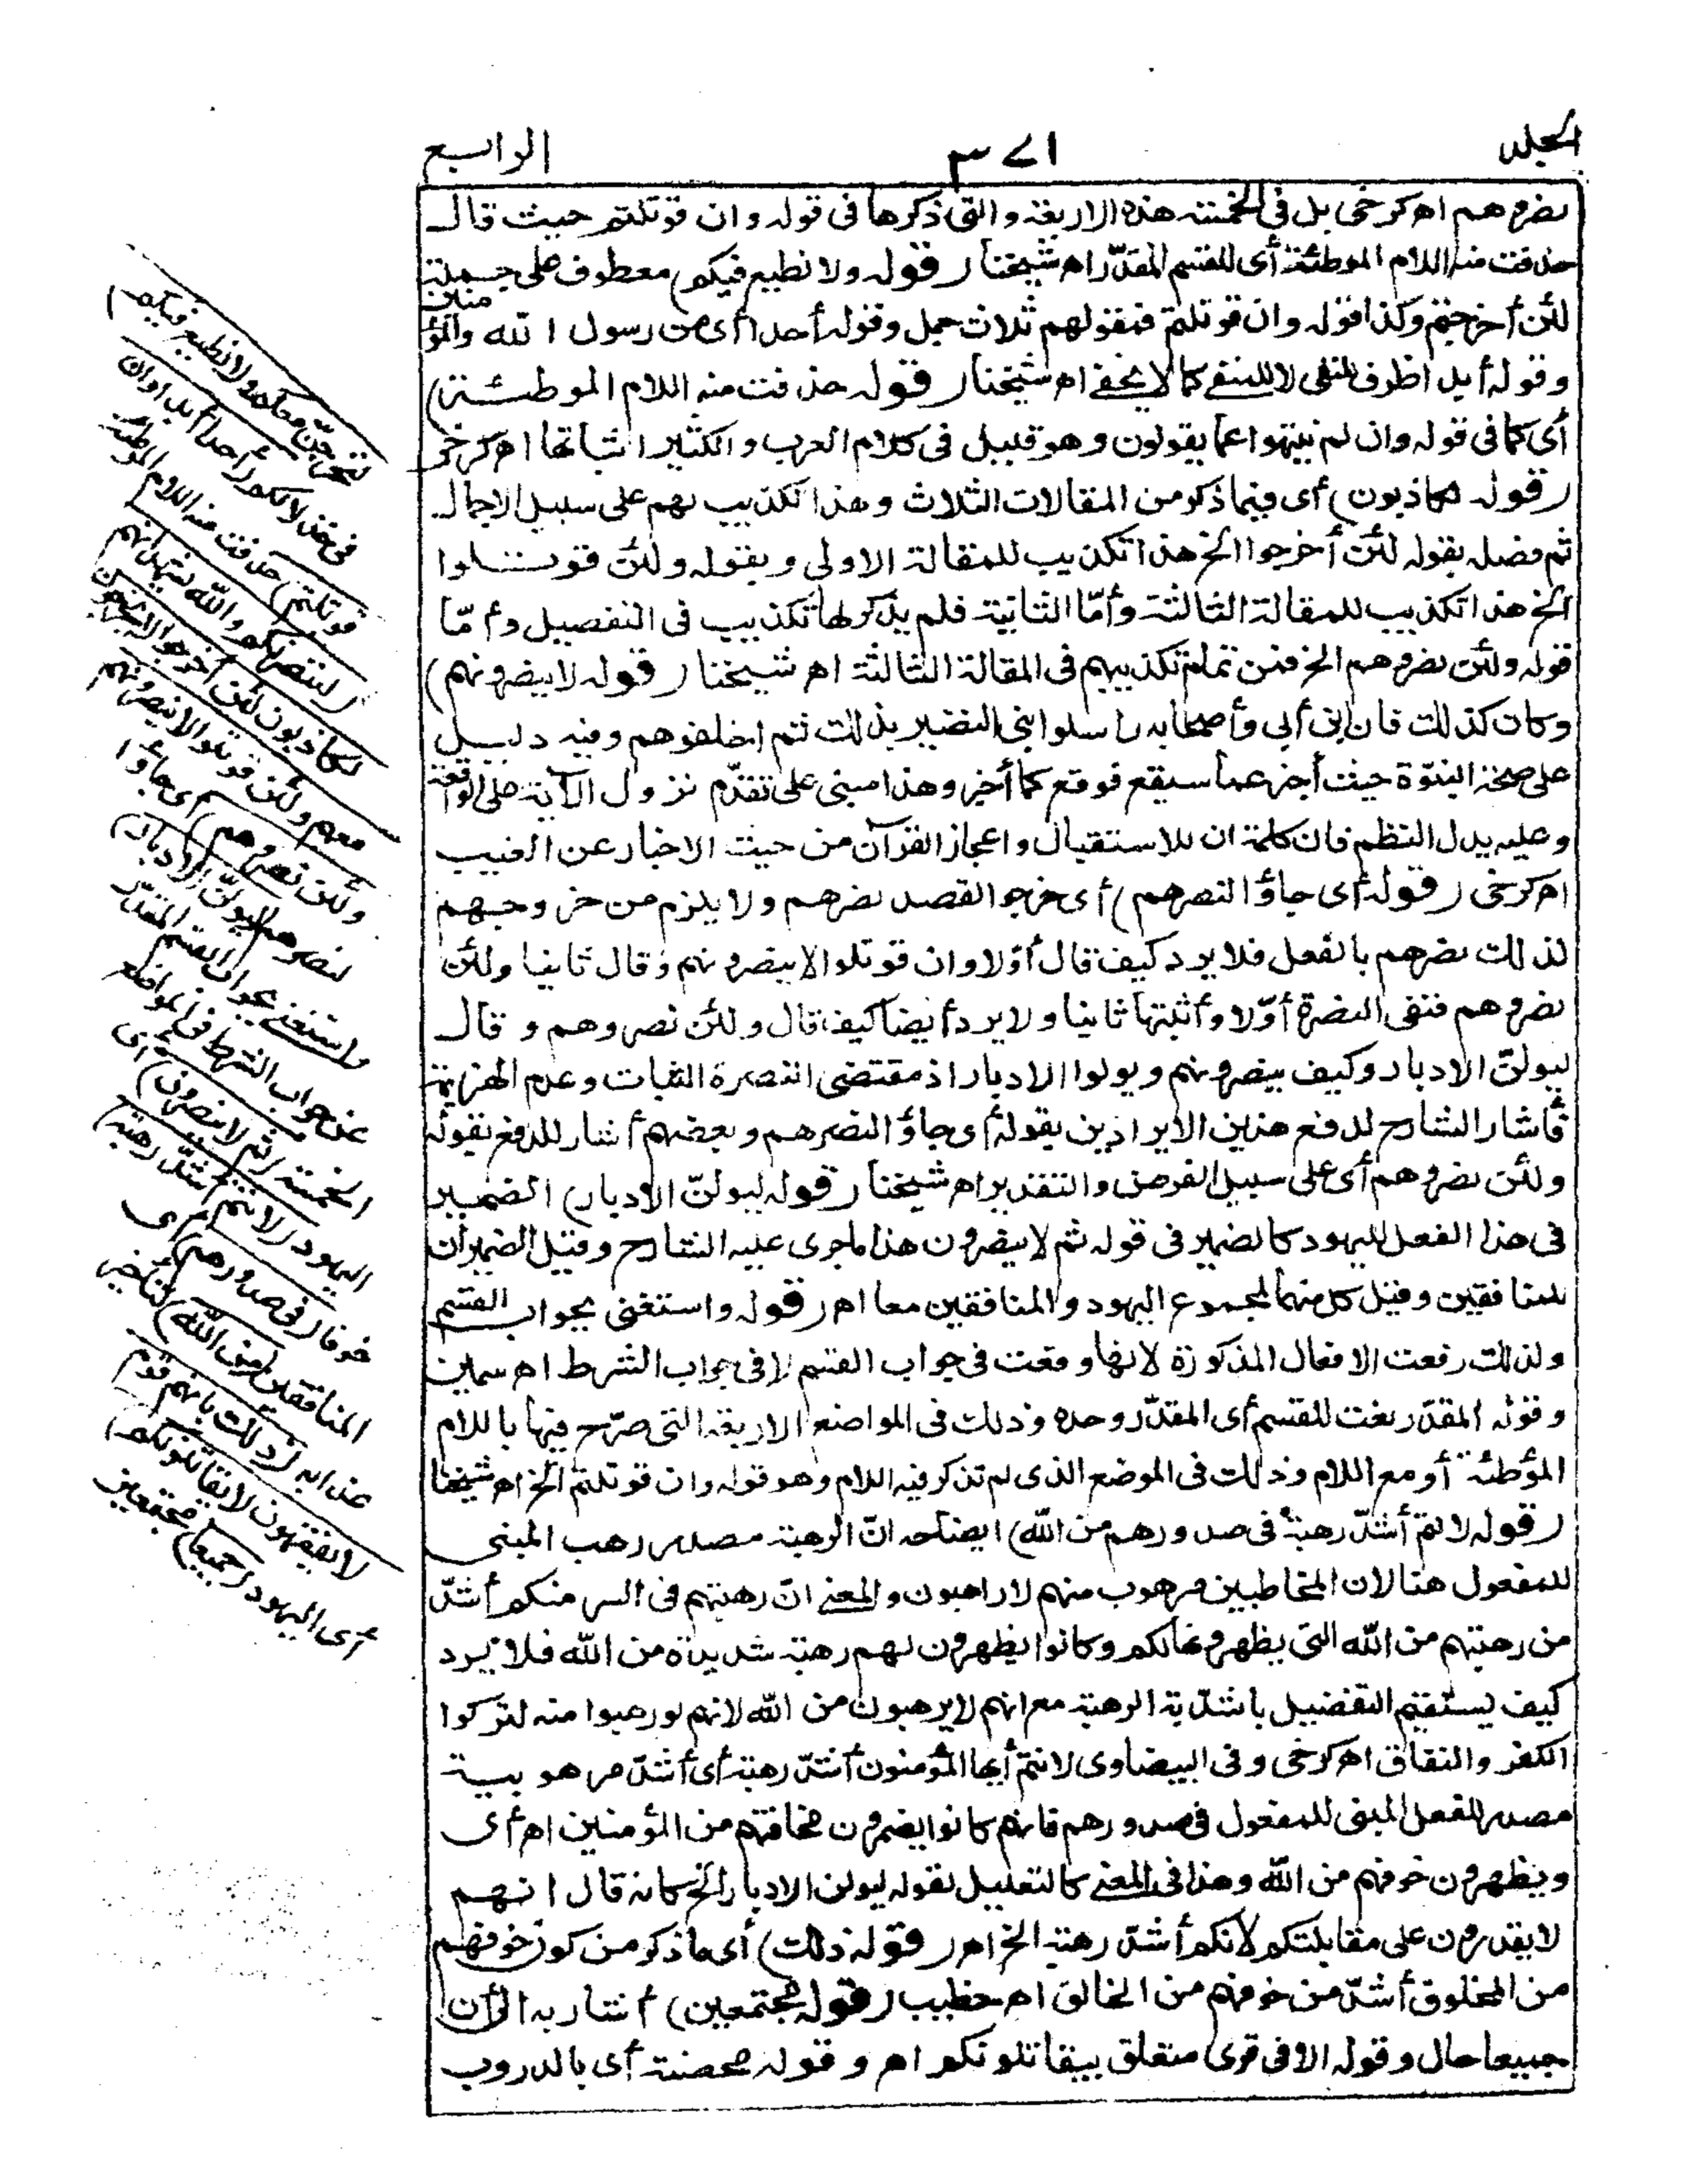 المجلد
٣٧١
الرابع
نصروهم اه كرخى بل فى الخمسة هذه الاربعة والتى ذكرها فى قوله وان قوتلتم حيث قال
حذفت منه اللام الموطئة أى للقسم المقدّر اه شيخنا (قوله ولا نطيع فيكم) معطوف على جملة
لئن أخرجتم وكذا قوله وان قوتلتم فمقولهم ثلاث جمل وقوله أحدا أى من رسول الله والمؤمنين
وقوله أبدا ظرف للنفى لا للمنفى كما لا يخفى اه شيخنا (قوله حذفت منه اللام الموطئة)
أى كما فى قوله وان لم ينتهوا عما يقولون وهو قليل فى كلام العرب والكثير اثباتها اه كرخى
(قوله لكاذبون) أى فيما ذكر من المقالات الثلاث وهذا تكذيب لهم على سبيل الاجمال
ثم فصله بقوله لئن أخرجوا الخ هذا تكذيب للمقالة الاولى وبقوله ولئن قوتلوا
الخ هذا تكذيب للمقالة الثالثة وأمّا الثانية فلم يذكر لها تكذيب فى التفصيل وأمّا
قوله ولئن نصروهم الخ فمن تمام تكذيبهم فى المقالة الثالثة اه شيخنا (قوله لا ينصرونهم)
وكان كذلك فان ابن أبى وأصحابه راسلوا بنى النضير بذلك ثم اخلفوهم وفيه دليل
على صحة النبوّة حيث أخبر عما سيقع فوقع كما أخبر وهذا مبنى على تقدّم نزول الآية على الواقعة
وعليه يدل النظم فان كلمة ان للاستقبال واعجاز القرآن من حيث الاخبار عن الغيب
اه كرخى (قوله أى جاؤا لنصرهم) أى خرجوا لقصد نصرهم ولا يلزم من خروجهم
لذلك نصرهم بالفعل فلا يرد كيف قال أوّلا وان قوتلوا لا ينصرونهم وقال ثانيا ولئن
نصروهم فنفى النصرة أوّلا وأثبتها ثانيا ولا يرد أيضا كيف قال ولئن نصروهم وقال
ليولنّ الادبار وكيف ينصرونهم ويولوا الادبار اذ مقتضى النصرة الثبات وعدم الهزيمة
فأشار الشارح لدفع هذين الايرادين بقوله أى جاؤا لنصرهم وبعضهم أشار للدفع بقوله
ولئن نصروهم أى على سبيل الفرض والتقدير اه شيخنا (قوله ليولنّ الادبار) الضمير
فى هذا الفعل لليهود كالضمير فى قوله ثم لا ينصرون هذا ما جرى عليه الشارح وقيل الضميران
للمنافقين وقيل كل منهما لمجموع اليهود والمنافقين معا اه (قوله واستغنى بجواب القسم
ولذلك رفعت الافعال المذكورة لانها وقعت فى جواب القسم لا فى جواب الشرط اه سمين
وقوله المقدّر نعت للقسم أى المقدّر وحده وذلك فى المواضع الاربعة التى صرّح فيها باللام
المؤطئة أو مع اللام وذلك فى الموضع الذى لم تذكر فيه اللام وهو قوله وان قوتلتم الخ اه شيخنا
(قوله لانتم أشدّ رهبة فى صدورهم من الله) ايضاحه انّ الرهبة مصدر رهب المبنى
للمفعول هنا لان المخاطبين مرهوب منهم لا راهبون والمعنى انّ رهبتهم فى السر منكم أشدّ
من رهبتهم من الله التى يظهرونها لكم وكانوا يظهرون لهم رهبة شديدة من الله فلا يرد
كيف يستقيم التفضيل باشدّية الرهبة مع انهم لا يرهبون من الله لانهم لو رهبوا منه لتركوا
الكفر والنفاق اه كرخى وفى البيضاوى لانتم أيها المؤمنون أشدّ رهبة أى أشدّ مرهوبية
مصدر للفعل المبنى للمفعول فى صدورهم فانهم كانوا يضمرون مخافتهم من المؤمنين اه أى
ويظهرون خوفهم من الله وهذا فى المعنى كالتعليل لقوله ليولن الادبار الخ كانه قال انهم
لا يقدرون على مقابلتكم لانكم أشدّ رهبة الخ اه (قوله ذلك) أى ما ذكر من كون خوفهم
من المخلوق أشدّ من خوفهم من الخالق اه خطيب (قوله مجتمعين) أشار به الى أن
جميعا حال وقوله الا فى قرى متعلق بيقاتلونكم اه وقوله محصنة أى بالدروب
لنخرجنّ معكم ولا نطيع فيكم)
فى خذلانكم (أحدا أبدا وان
قوتلتم) حذفت منه اللام الموطئة
(لننصرنكم والله يشهد انهم
لكاذبون لئن أخرجوا لا يخرجون
معهم ولئن قوتلوا لا ينصرونهم
ولئن نصروهم) أى جاؤا
لنصرهم (ليولنّ الادبار)
واستغنى بجواب القسم المقدّر
عن جواب الشرط فى المواضع
الخمسة (ثم لا ينصرون) أى
اليهود (لانتم أشدّ رهبة)
خوفا (فى صدورهم) أى
المنافقين (من الله) لتأخير
عذابه (ذلك بانهم قوم
لا يفقهون لا يقاتلونكم)
أى اليهود (جميعا) مجتمعين